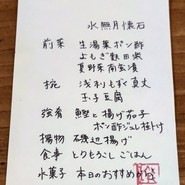 水無月懐石
前菜 生湯葉ポン酢
よもぎ麩田楽
夏野菜南蛮漬
椀 浅利もずく真丈
玉子豆腐
強肴 鰹と揚げ茄子
ポン酢ジュレ掛け
揚物 磯辺揚げ
食事 とうもろこしごはん
水菓子 本日のおすすめ